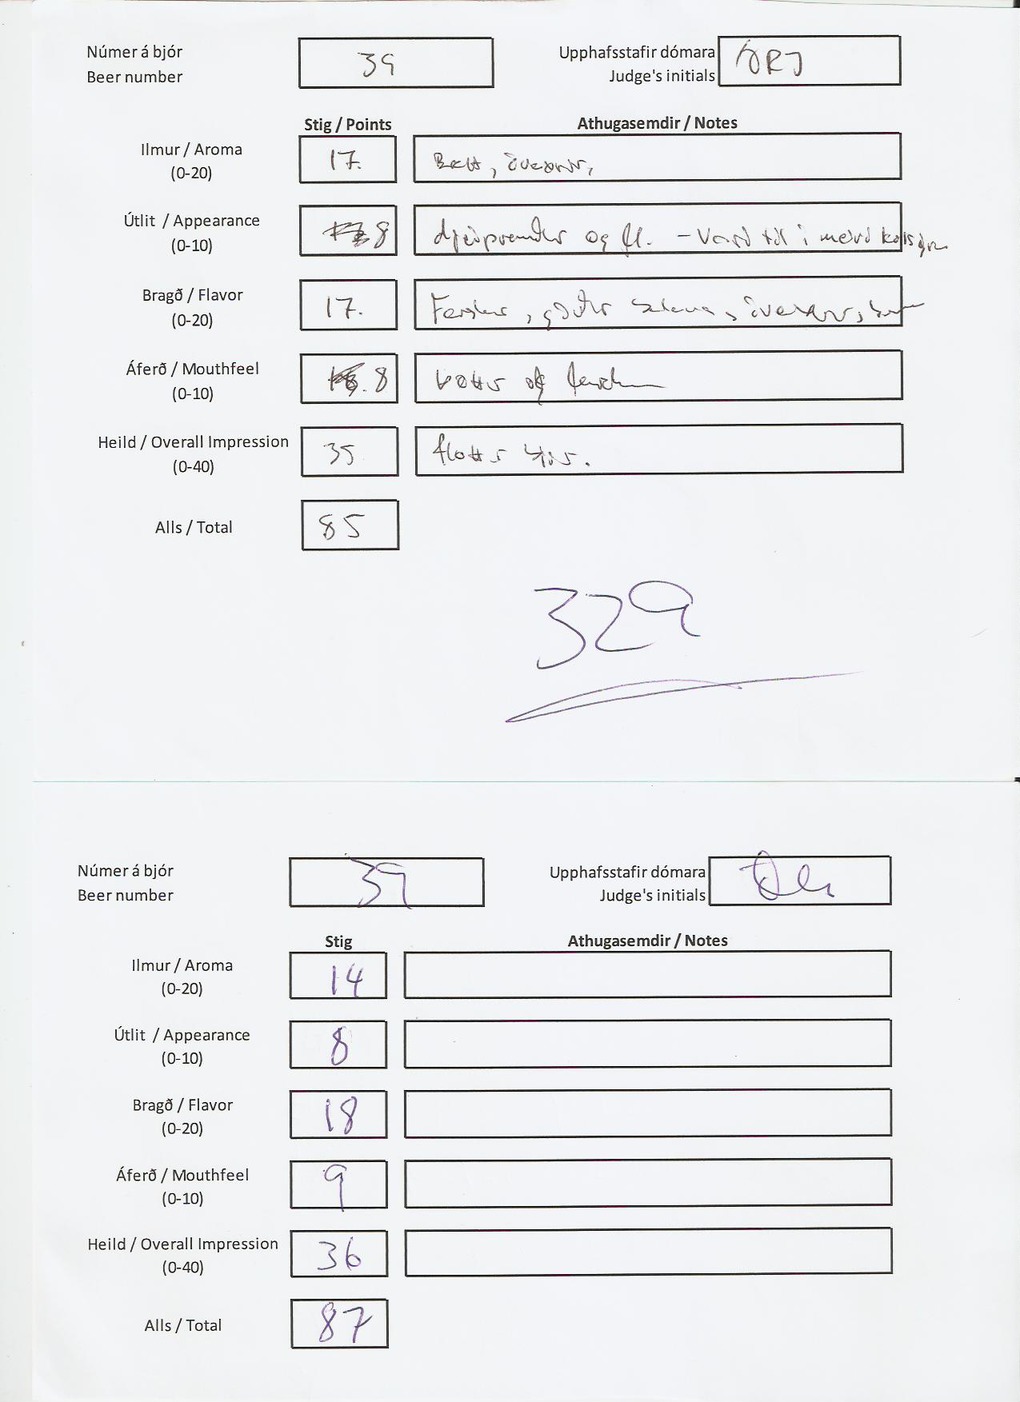 Númer á bjór
Beer number
39
Upphafsstafir dómara
Judge's initials
ÖRJ
Stig / Points
Athugasemdir / Notes
Ilmur / Aroma
(0-20)
17.
Útlit / Appearance
(0-10)
8
og fl. - til í
Bragð / Flavor
(0-20)
17.
Áferð / Mouthfeel
(0-10)
8
og
Heild / Overall Impression
(0-40)
35
flottur
Alls / Total
85
329
Númer á bjór
Beer number
39
Upphafsstafir dómara
Judge's initials
Stig
Athugasemdir / Notes
Ilmur / Aroma
(0-20)
14
Útlit / Appearance
(0-10)
8
Bragð / Flavor
(0-20)
18
Áferð / Mouthfeel
(0-10)
9
Heild / Overall Impression
(0-40)
36
Alls / Total
87